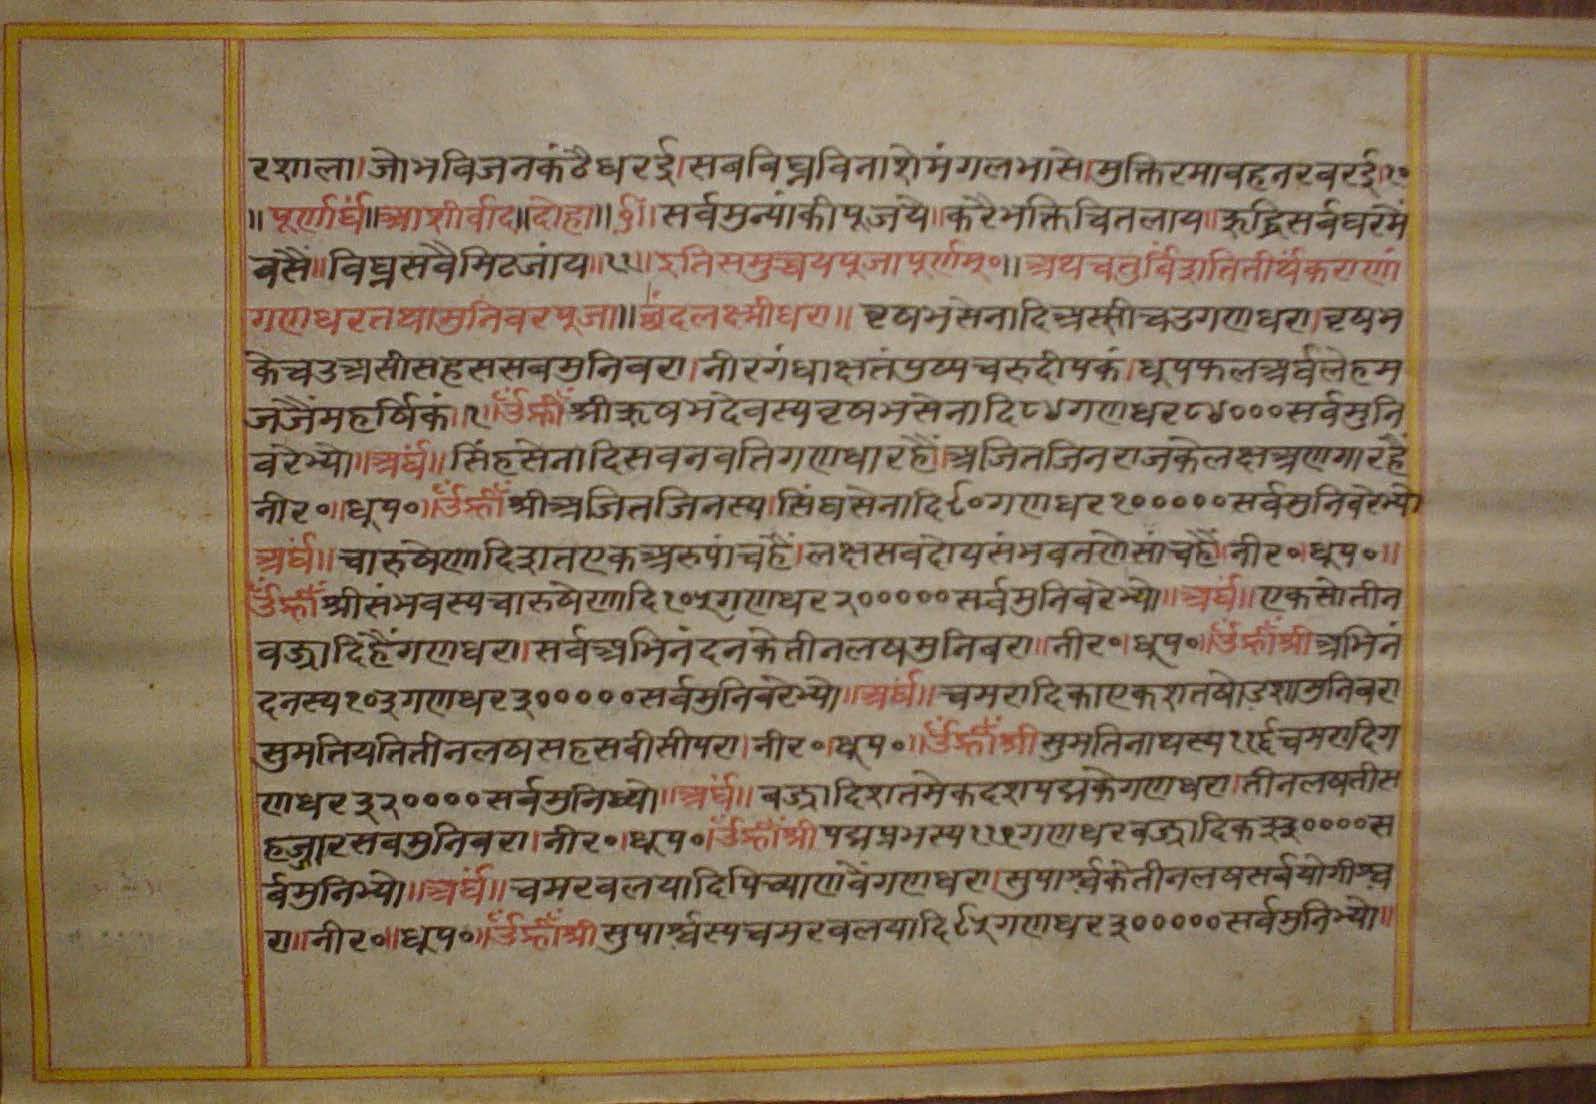 रशाला।जोभविजनकंठैधरई।सबबिघ्नविनाशेमंगलभासे।मुक्तिरमावहनरवरई।१०
॥पूर्णार्घं॥आशीर्वाद॥दोहा॥ सर्वमुन्यांकीपूजयै॥करैभक्तिचितलाय॥ऋद्धिसर्वघरमें
बसैं॥विघ्नसवैमिटजांय॥११॥इतिसमुच्चयपूजापूर्णम्०॥अथचतुर्विंशतितीर्थंकराणां
गणधरतथामुनिवरपूजा॥छंदलक्ष्मीधरा॥वृषभसेनादिअस्सीचउगणधरा।वृषभ
केचउअसीसहससबमुनिवरा।नीरगंधाक्षतंपुष्पचरुदीपकं।धूपफलअर्घलेहम
जजैंमहर्षिकं।१।ॐह्रींश्रीऋषभदेवस्यवृषभसेनादि८४गणधर८४०००सर्वमुनि
वरेभ्यो॥अर्घं॥सिंहसेनादिसवनवतिगणधारहैं।अजितजिनराजकेलक्षअणगारहैं
नीर०।धूप०।ॐह्रींश्रीअजितजिनस्य।सिंघसेनादि९०गणधर१०००००सर्वमुनिवरेभ्यो
अर्घं॥चारुषेणादिशतएकअरुपांचहैं।लक्षसवदोयसंभवतणेसांचहैं।नीर०।धूप०॥
ॐह्रींश्रीसंभवस्यचारुषेणादि१०५गणधर२०००००सर्वमुनिवरेभ्यो॥अर्घं॥एकसोतीन
वज्रादिहैंगणधरा।सर्वअभिनंदनकेतीनलषमुनिवरा॥नीर०।धूप०॥ॐह्रींश्रीअभिनं
दनस्य१०३गणधर३०००००सर्वमुनिवरेभ्यो॥अर्घं॥चमरादिकाएकशतषोडशमुनिवरा
सुमतियतितीनलषसहसवीसीपरा।नीर०।धूप०॥ॐह्रींश्रीसुमतिनाथस्य११६चमरादिग
णधर३२००००सर्वमुनिभ्यो॥अर्घं॥वज्रादिशतमेकदशपद्मकेगणधरा।तीनलषतीस
हजारसवमुनिवरा।नीर०।धूप०।ॐह्रींश्रीपद्मप्रभस्य१११गणधरवज्रादिक३३००००स
र्वमुनिभ्यो॥अर्घं॥चमरवलयादिपिच्याणवैंगणधरा।सुपार्श्वकेतीनलषसर्वयोगीश्व
रा॥नीर०॥धूप०॥ॐह्रींश्रीसुपार्श्वस्यचमरवलयादि९५गणधर३०००००सर्वमुनिभ्यो॥